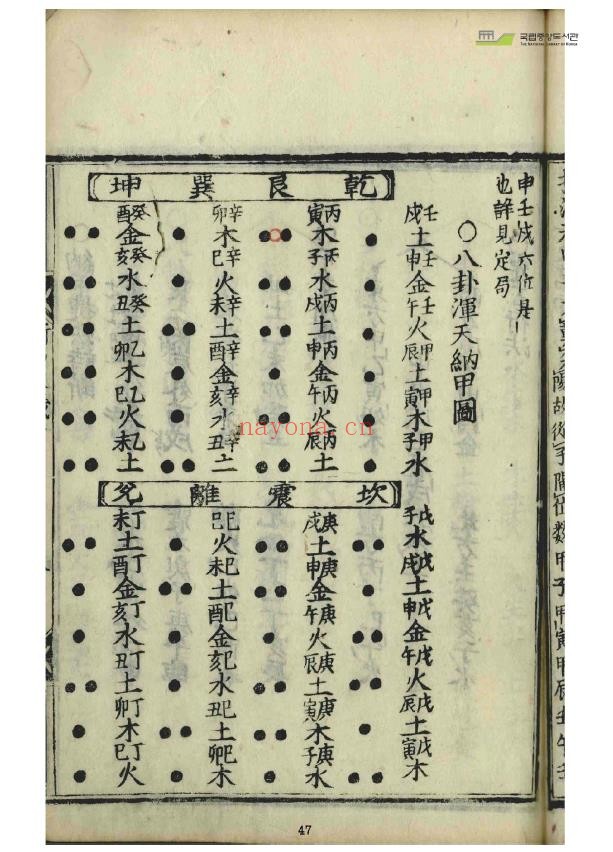 국립중앙도서관
THE NATIONAL LIBRARY OF KOREA
申壬戌六位是
也詳見定局
〇八卦渾天納甲圖
乾艮巽坤
壬戌土壬申金壬午火甲辰土甲寅木甲子水
丙寅木丙子水丙戌土丙申金丙午火丙辰土
辛卯木辛巳火辛未土辛酉金辛亥水辛丑土
癸酉金癸亥水癸丑土乙卯木乙巳火乙未土
坎震離兌
戊子水戊戌土戊申金戊午火戊辰土戊寅木
庚戌土庚申金庚午火庚辰土庚寅木庚子水
己巳火己未土己酉金己亥水己丑土己卯木
丁未土丁酉金丁亥水丁丑土丁卯木丁巳火
nayona.cn
47